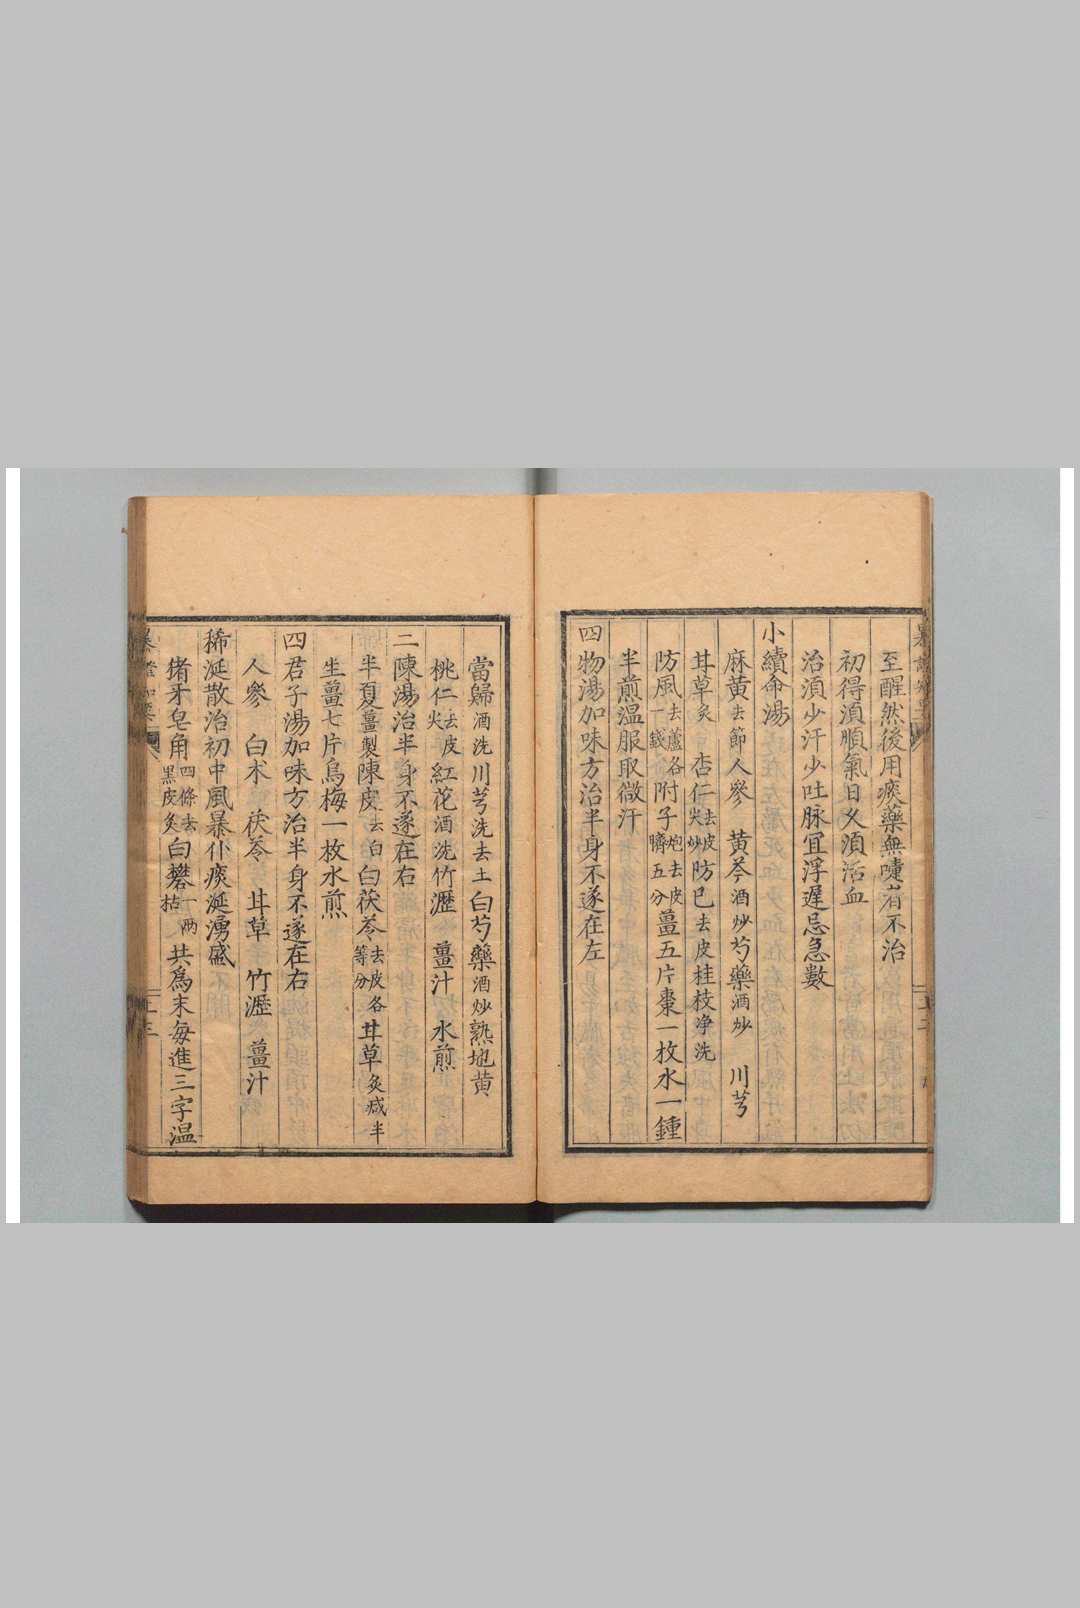 至醒然後用痰藥無嚏者不治
初得湏順氣日乂湏活血
治湏少汗少吐脉冝浮遲忌急數
小續命湯
麻黄去節人參 黄芩酒炒芍藥酒炒 川芎
甘草炙 杏仁去皮尖炒防已去皮桂枝净洗
防風去蘆各一錢附子炮去皮臍五分薑五片棗一枚水一鍾
半煎温服取微汗
四物湯加味方治半身不遂在左
當歸酒洗川芎洗去土白芍藥酒炒熟地黄
桃仁去皮尖紅花酒洗竹瀝 薑汁 水煎
二陳湯治半身不遂在右
半夏薑製陳皮去白白茯苓去皮各等分甘草炙减半
生薑七片烏梅一枚水煎
四君子湯加味方治半身不遂在右
人參 白术 茯苓 甘草 竹瀝 薑汁
稀涎散治初中風暴仆痰涎湧盛
猪牙皂角四條去黑皮炙白礬一两枯共爲末每進三字温